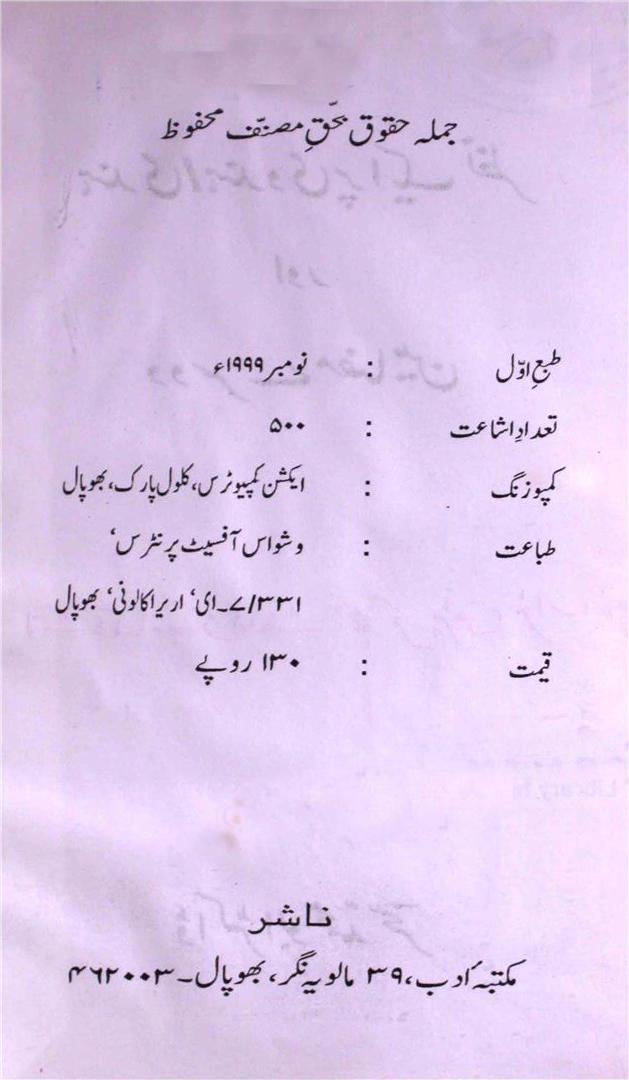 جملہ حقوق بحقِ مصنّف محفوظ
طبعِ اوّل : نومبر ۱۹۹۹ء
تعدادِ اشاعت : ۵۰۰
کمپوزنگ : ایکشن کمپیوٹرس، کلول پارک، بھوپال
طباعت : وشواس آفسیٹ پرنٹرس‘
۳۳۱/۷۔ای‘ اریرا کالونی‘ بھوپال
قیمت : ۱۳۰ روپے
ناشر
مکتبۂ ادب، ۳۹ مالویہ نگر، بھوپال۔۴۶۲۰۰۳